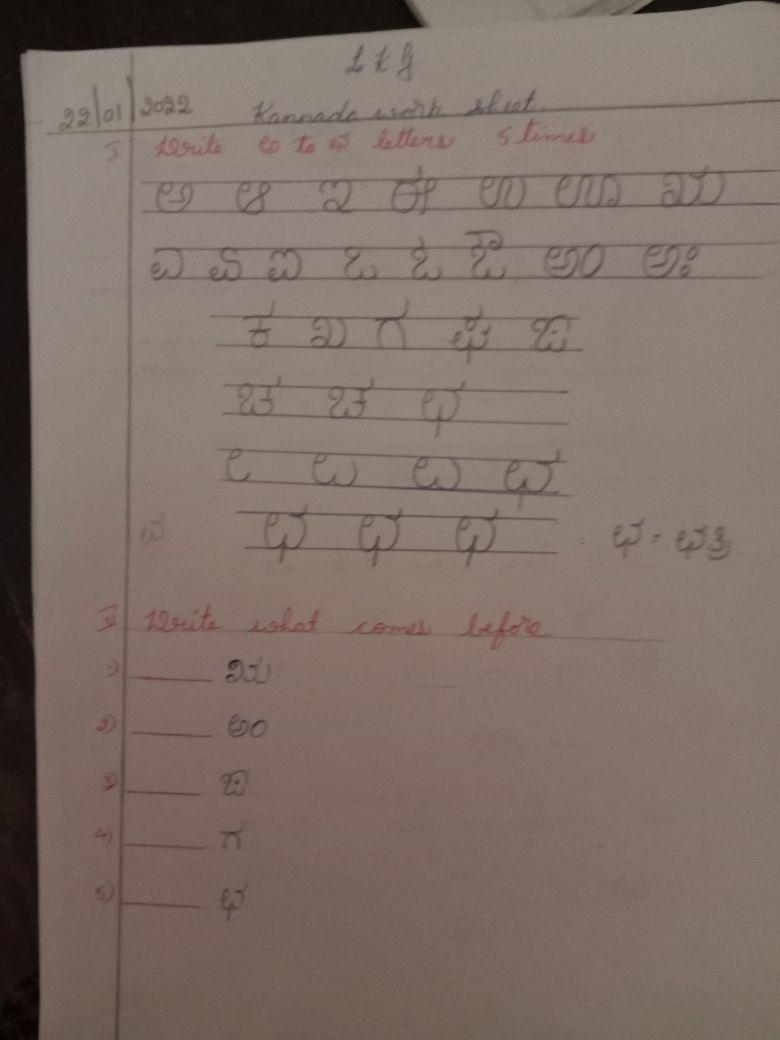 LKG
22/01/2022 Kannada work sheet
I Write ಅ to ಛ letters 5 times
ಅ ಆ ಇ ಈ ಉ ಊ ಋ
ಎ ಏ ಐ ಒ ಓ ಔ ಅಂ ಅಃ
ಕ ಖ ಗ ಘ ಙ
ಚ ಚ ಛ
ಛ
ಛ ಛ ಛ ಛ = ಛತ್ರಿ
II Write what comes before
1) ____ ಋ
2) ____ ಅಂ
3) ____ ಙ
4) ____ ಗ
5) ____ ಛ